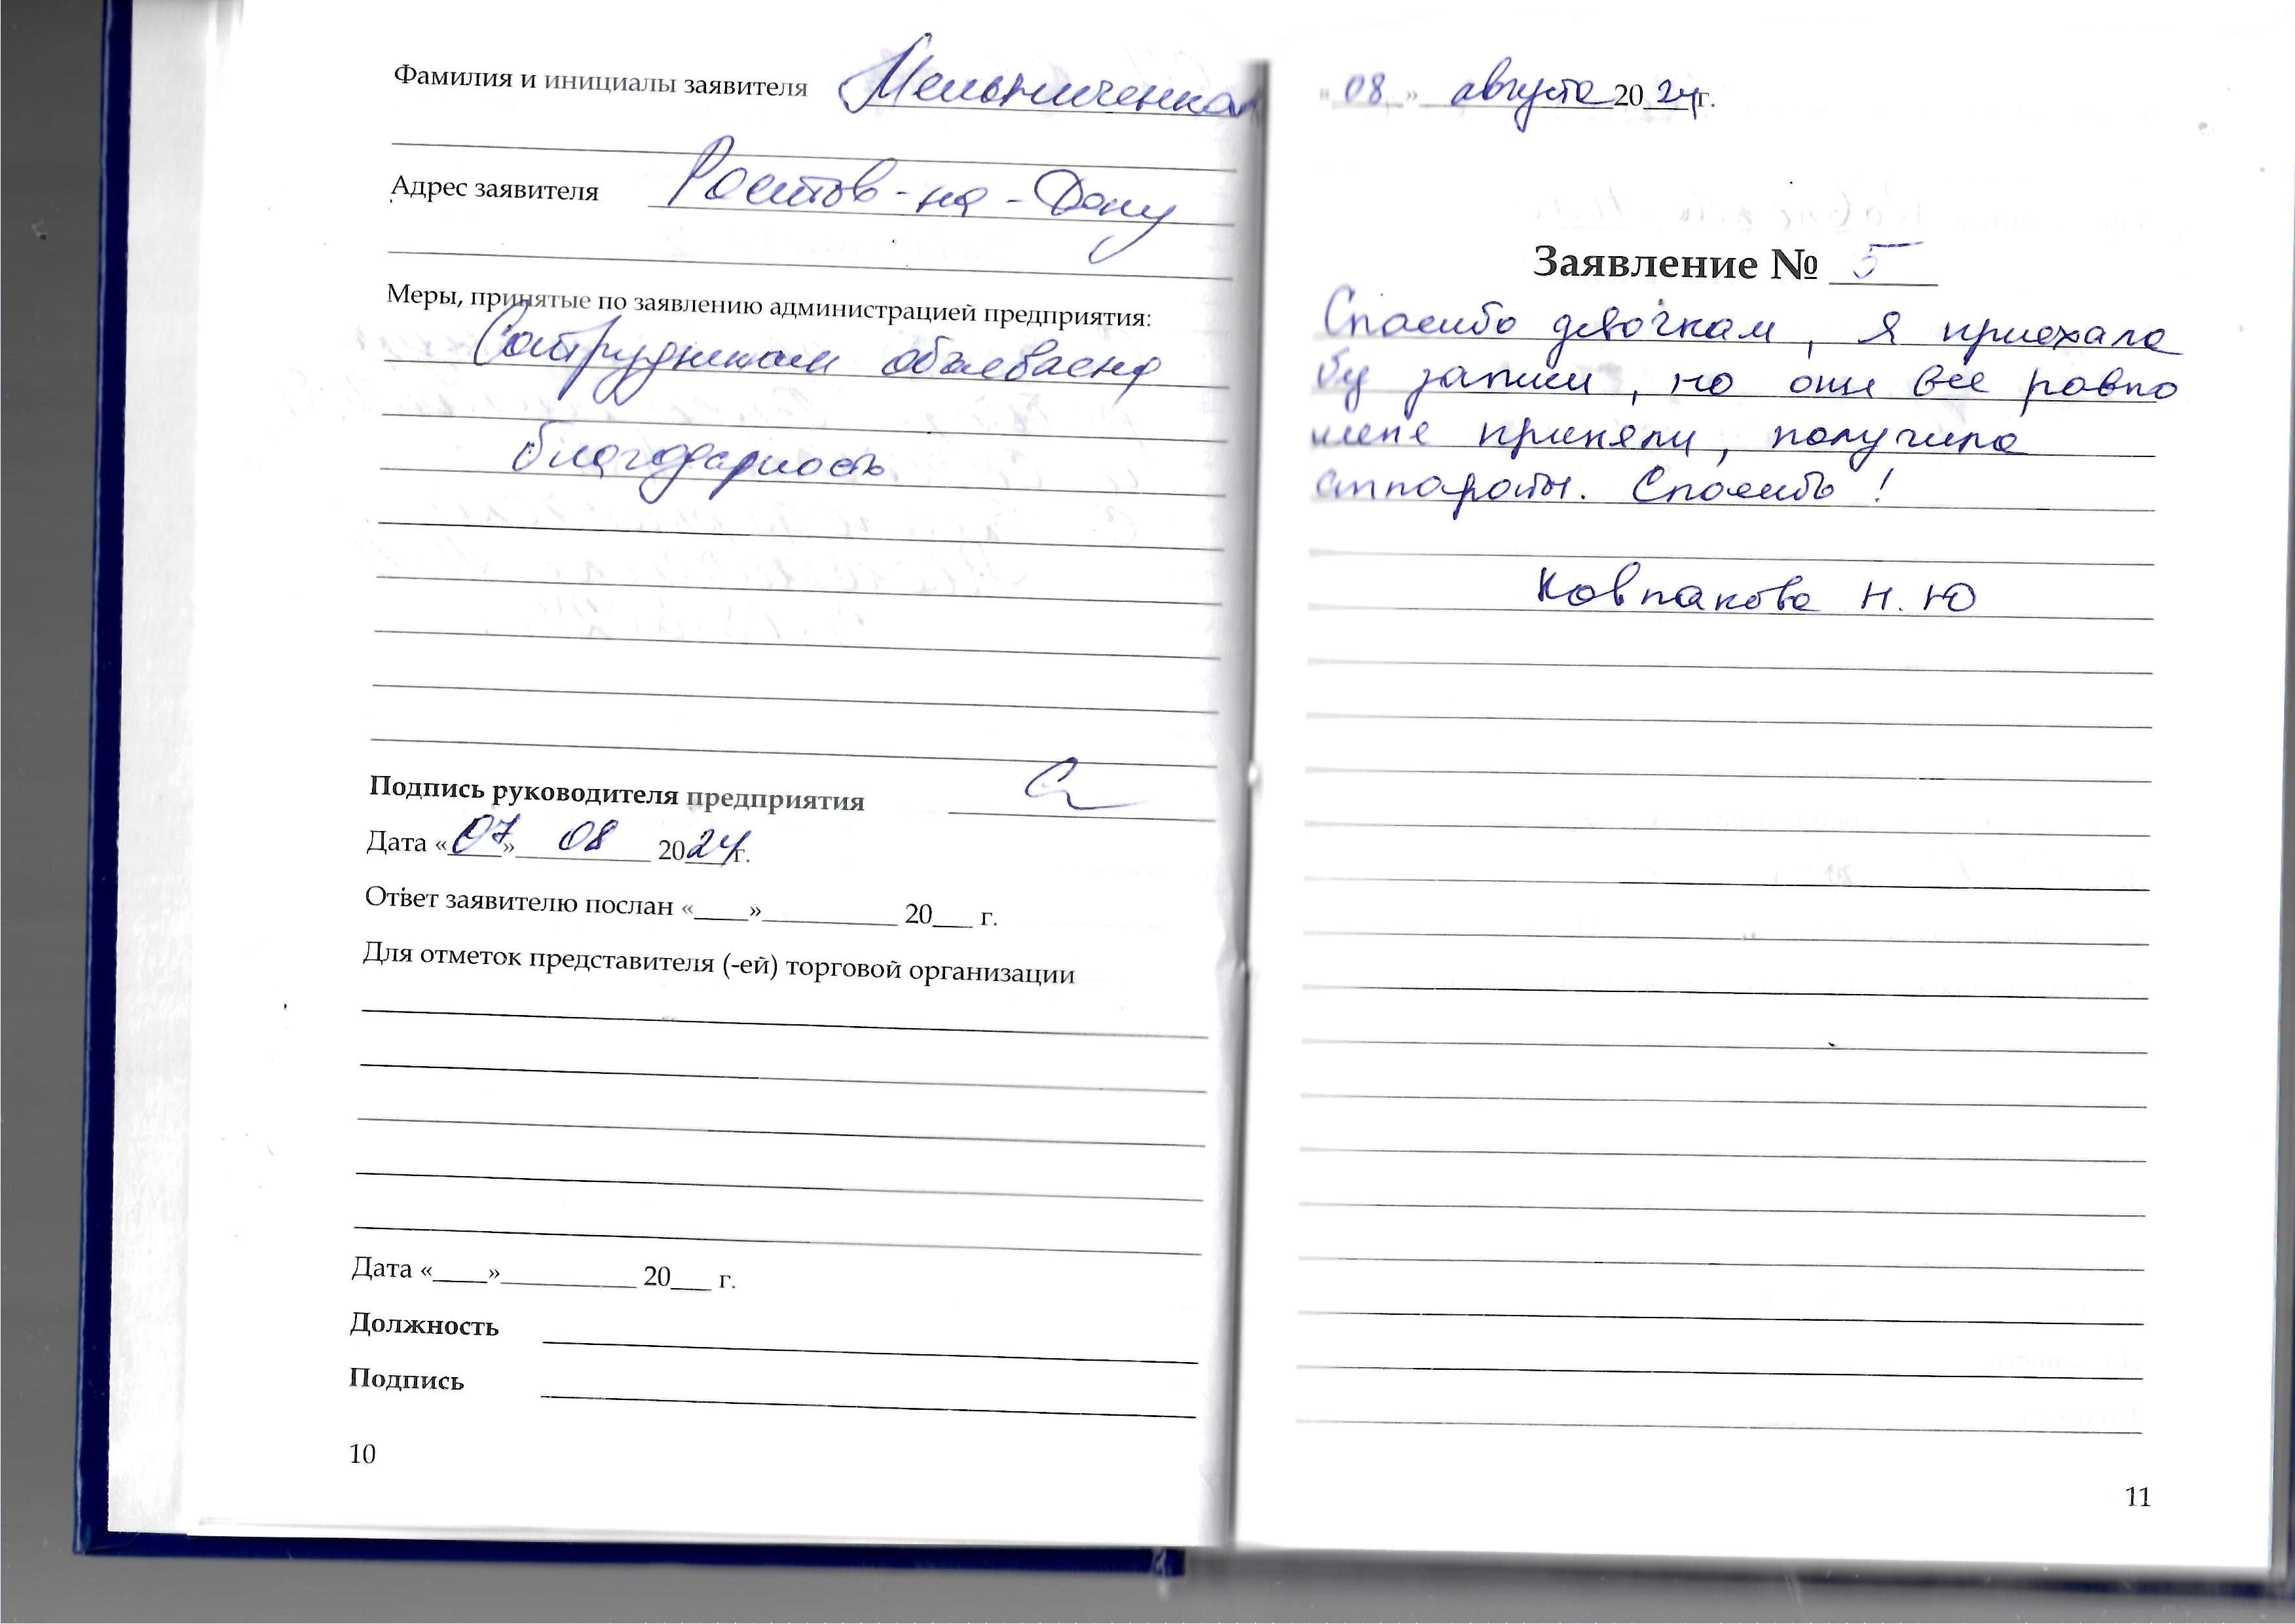 Фамилия и инициалы заявителя Мельниченко
Адрес заявителя Ростов-на-Дону
Меры, принятые по заявлению администрацией предприятия:
Сотрудникам объявлена
благодарность
Подпись руководителя предприятия
Дата «07» 08 2024г.
Ответ заявителю послан «____»__________ 20___ г.
Для отметок представителя (-ей) торговой организации
Дата «____»__________ 20___ г.
Должность
Подпись
10
«08» августа 2024г.
Заявление № 5
Спасибо девочкам, я приехала
бу записи, но они все равно
меня приняли, получила
аппараты. Спасибо!
Ковпакова Н.Ю
11